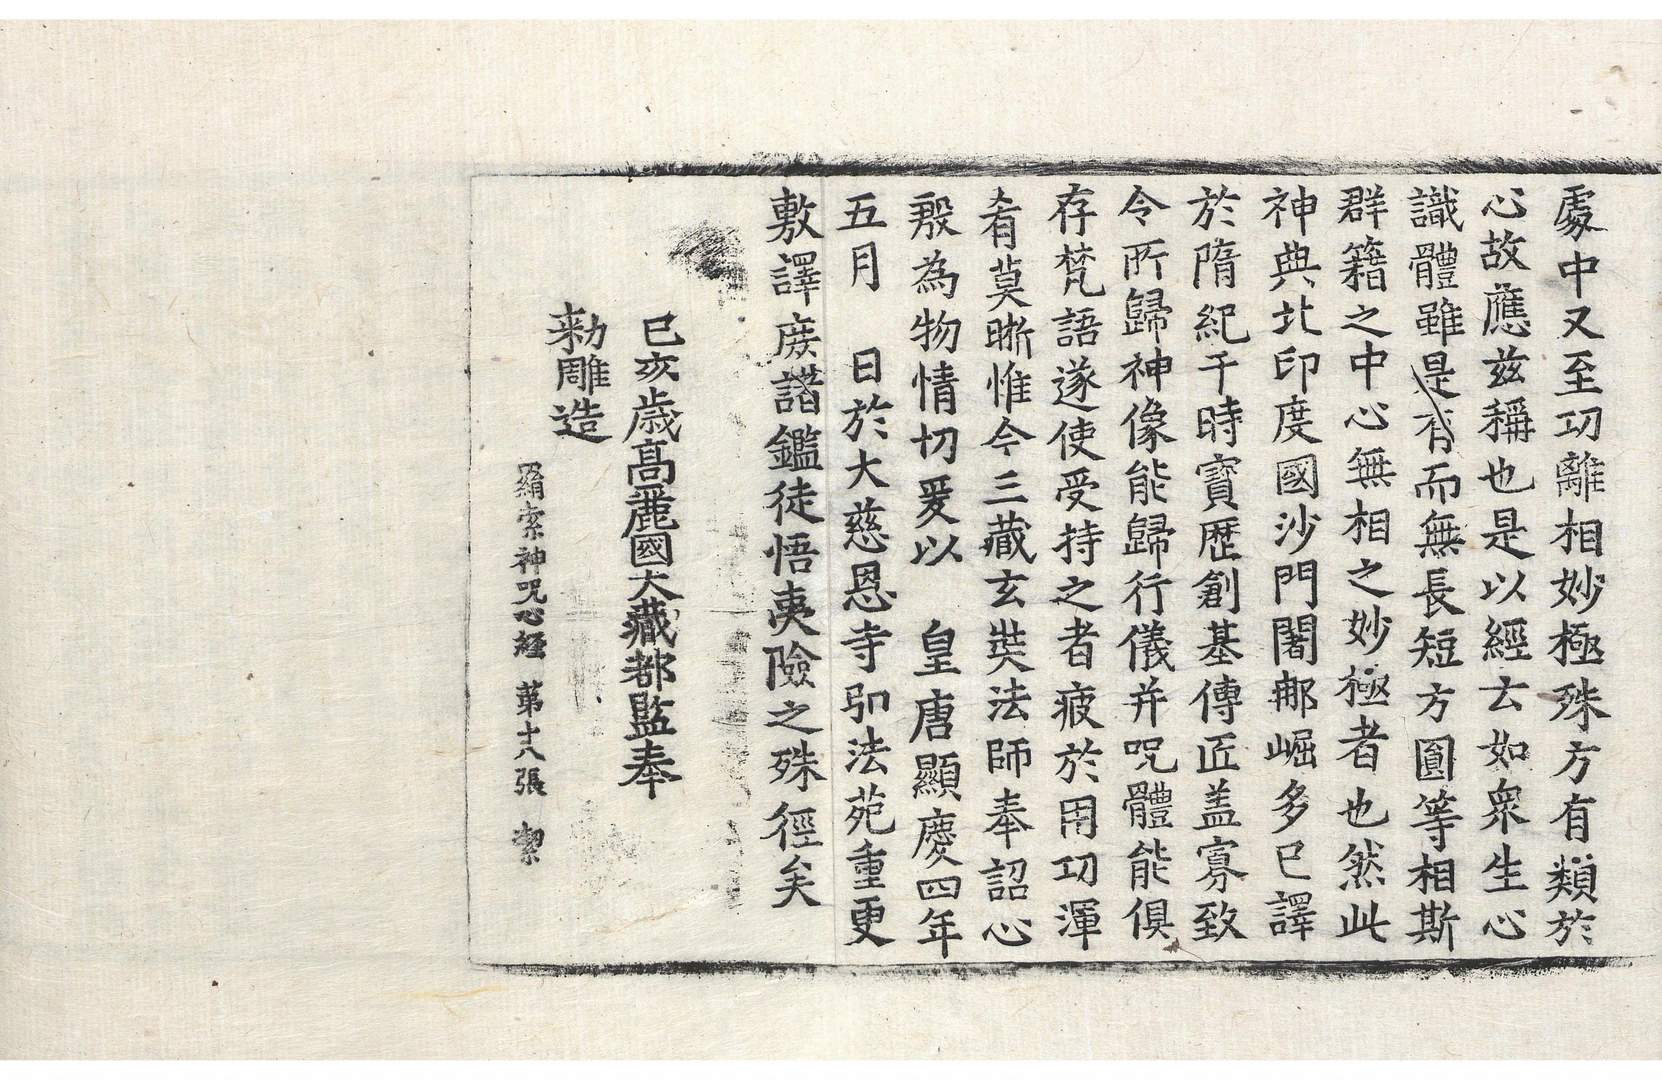 處中又至功離相妙極殊方有類於
心故應兹稱也是以經云如衆生心
識體雖是有而無長短方圓等相斯
群籍之中心無相之妙極者也然此
神典北印度國沙門闍郍崛多已譯
於隋紀于時寶歷創基傳匠盖寡致
令所歸神像能歸行儀并呪體能俱
存梵語遂使受持之者疲於用功渾
肴莫晰惟今三藏玄奘法師奉詔心
殷為物情切爰以　皇唐顯慶四年
五月　日於大慈恩寺弘法苑重更
敷譯庶諧鑑徒悟夷險之殊徑矣
己亥歳髙麗國大藏都監奉
勑雕造
羂索神呪心經　第十八張　潔